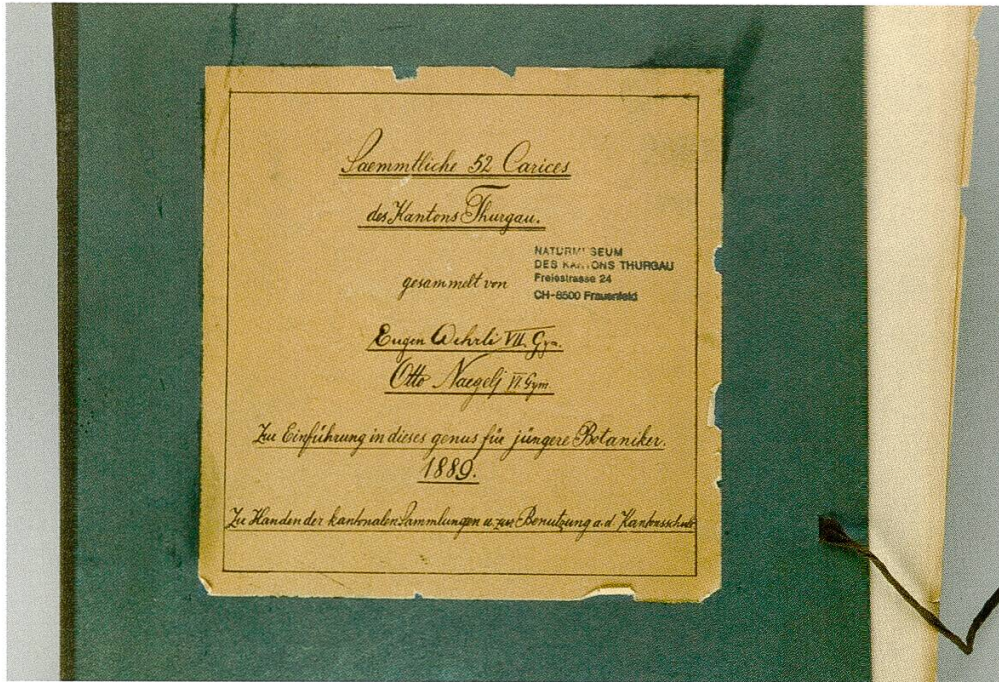 Saemmtliche 52 Carices
des Kantons Thurgau.
NATURMUSEUM
DES KANTONS THURGAU
Freiestrasse 24
CH-8500 Frauenfeld
gesammelt von
Eugen Wehrli VII. Gym.
Otto Naegeli VI. Gym.
Zur Einführung in dieses genus für jüngere Botaniker.
1889.
Zu Handen der kantonalen Sammlungen u. zur Benutzung a. d. Kantonsschule